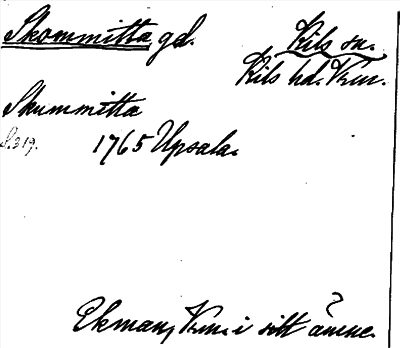 Skommitta gd. Kils sn.
Kils hd. Vrm.
Skummitta
S. 319. 1765 Upsala.
Ekman, Vrm. i sitt ämne.